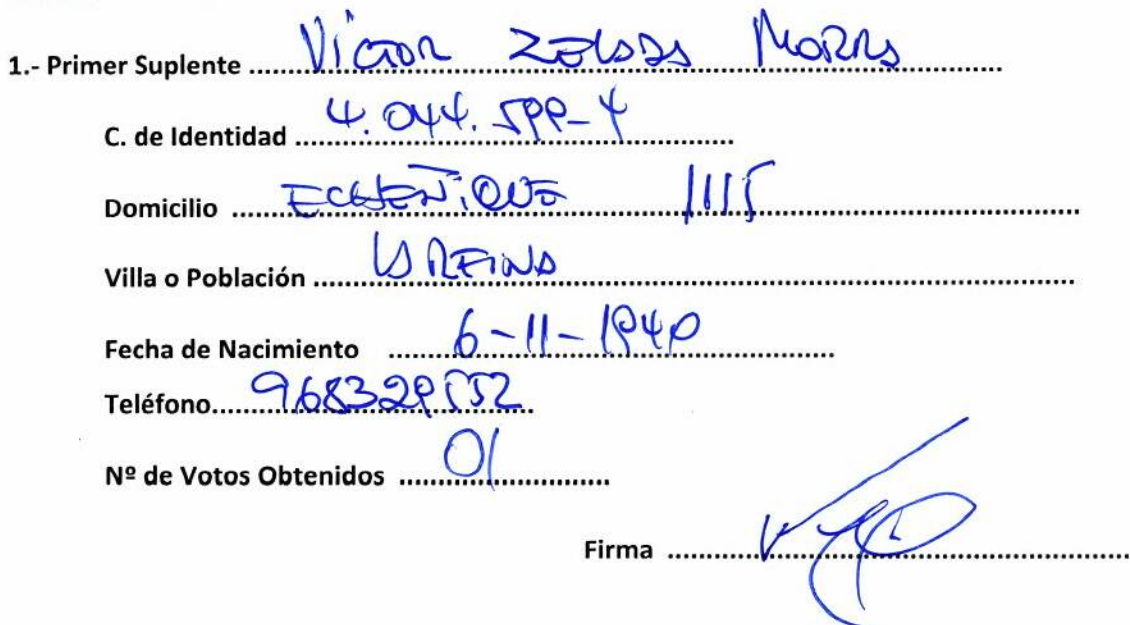 1.- Primer Suplente Victor Zelada Morra
C. de Identidad 4.044.599-4
Domicilio ECHEÑIQUE 1115
Villa o Población LA REINA
Fecha de Nacimiento 6-11-1940
Teléfono 968329552
Nº de Votos Obtenidos 01
Firma